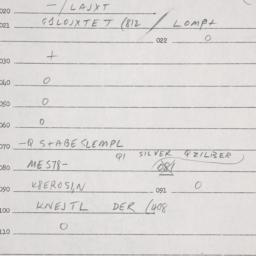 020 —/ LAJXT
021 G1LOJXTET (812 / LOMP+
022 0
030 +
040 0
050 0
060 0
070 —Q S+ABE SLEMPL
Q1 SILVER QZILBER)
080 MEST8- (081
090 K8EROSI,N 091 0
100 KNEJTL DER (408
110 0